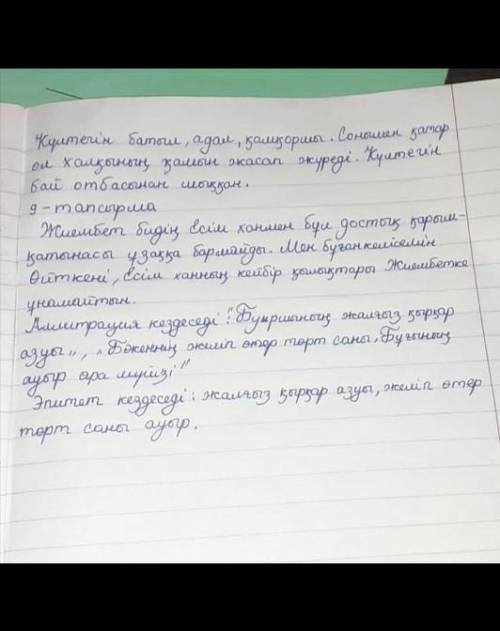 Күлтегін батыл, адал, қамқоршы. Сонымен қатар
ол халқының қамын жасап жүреді. Күлтегін
бай отбасынан шыққан.
9-тапсырма
Жиембет бидің Есім ханмен бұл достық қарым-
қатынасы ұзаққа бармайды. Мен бұған келісемін
Өйткені, Есім ханның кейбір қылықтары Жиембетке
ұнамайтын.
Аллитрация кездеседі: "Буыршының жалғыз қырқар
азуы", "Бөкеннің желіп өтер төрт саны, Бұғының
ауыр ара мүйізі"
Эпитет кездеседі: жалғыз қырқар азуы, желіп өтер
төрт саны ауыр.